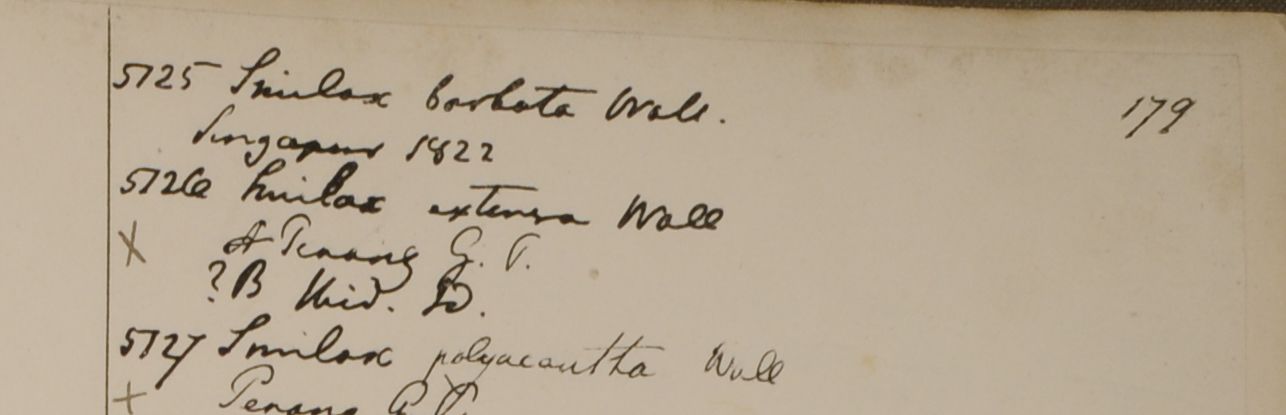 179
5125 Smilax barbata Wall.
Singapur 1822
5126 Smilax extensa Wall
X A Penang G. P.
? B Ibid.
5127 Smilax polyacantha Wall
+ Penang G. P.